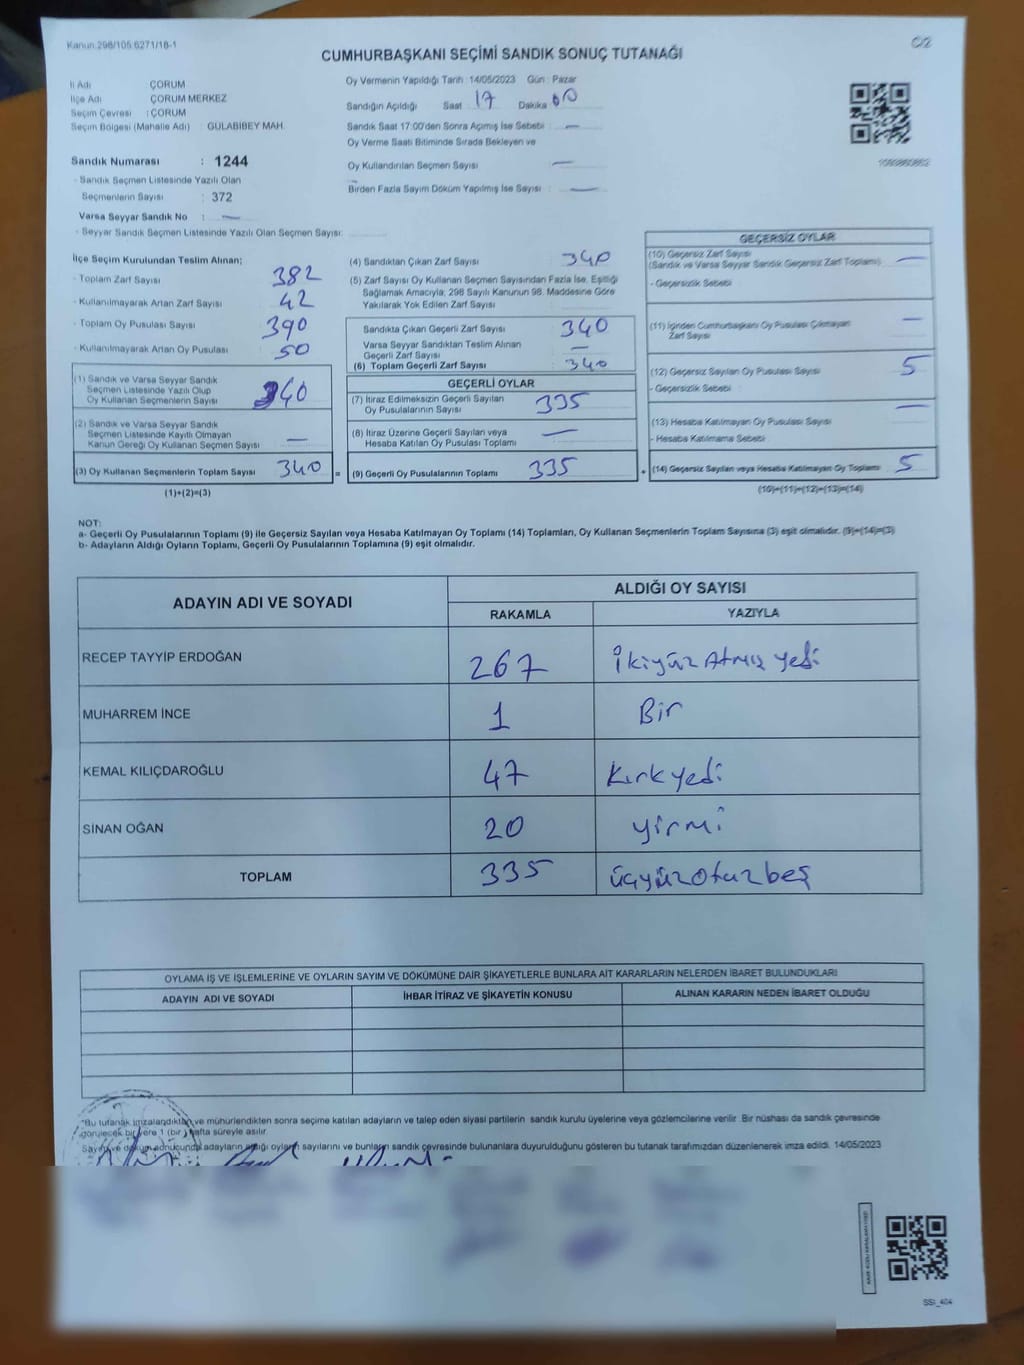 Kanun.298/105.6271/18-1
C/2
CUMHURBAŞKANI SEÇİMİ SANDIK SONUÇ TUTANAĞI
İl Adı ÇORUM
İlçe Adı ÇORUM MERKEZ
Seçim Çevresi : ÇORUM
Seçim Bölgesi (Mahalle Adı) : GÜLABİBEY MAH.
Sandık Numarası : 1244
- Sandık Seçmen Listesinde Yazılı Olan
Seçmenlerin Sayısı : 372
Varsa Seyyar Sandık No : —
- Seyyar Sandık Seçmen Listesinde Yazılı Olan Seçmen Sayısı:
Oy Vermenin Yapıldığı Tarih : 14/05/2023 Gün : Pazar
Sandığın Açıldığı Saat 17 Dakika 00
Sandık Saat 17:00'den Sonra Açımış İse Sebebi : —
Oy Verme Saati Bitiminde Sırada Bekleyen ve
Oy Kullandırılan Seçmen Sayısı : —
Birden Fazla Sayım Döküm Yapılmış İse Sayısı : —
İlçe Seçim Kurulundan Teslim Alınan;
- Toplam Zarf Sayısı : 382
- Kullanılmayarak Artan Zarf Sayısı : 42
- Toplam Oy Pusulası Sayısı : 390
- Kullanılmayarak Artan Oy Pusulası : 50
(1) Sandık ve Varsa Seyyar Sandık
Seçmen Listesinde Yazılı Olup
Oy Kullanan Seçmenlerin Sayısı : 340
(2) Sandık ve Varsa Seyyar Sandık
Seçmen Listesinde Kayıtlı Olmayan
Kanun Gereği Oy Kullanan Seçmen Sayısı : —
(3) Oy Kullanan Seçmenlerin Toplam Sayısı 340 =
(1)+(2)=(3)
(4) Sandıktan Çıkan Zarf Sayısı : 340
(5) Zarf Sayısı Oy Kullanan Seçmen Sayısından Fazla İse, Eşitliği
Sağlamak Amacıyla; 298 Sayılı Kanunun 98. Maddesine Göre
Yakılarak Yok Edilen Zarf Sayısı :
Sandıkta Çıkan Geçerli Zarf Sayısı : 340
Varsa Seyyar Sandıktan Teslim Alınan
Geçerli Zarf Sayısı : —
(6) Toplam Geçerli Zarf Sayısı : 340
GEÇERLİ OYLAR
(7) İtiraz Edilmeksizin Geçerli Sayılan
Oy Pusulalarının Sayısı : 335
(8) İtiraz Üzerine Geçerli Sayılan veya
Hesaba Katılan Oy Pusulası Toplamı : —
(9) Geçerli Oy Pusulalarının Toplamı : 335 +
GEÇERSİZ OYLAR
(10) Geçersiz Zarf Sayısı
(Sandık ve Varsa Seyyar Sandık Geçersiz Zarf Toplamı) : —
- Geçersizlik Sebebi :
(11) İçinden Cumhurbaşkanı Oy Pusulası Çıkmayan
Zarf Sayısı : —
(12) Geçersiz Sayılan Oy Pusulası Sayısı : 5
- Geçersizlik Sebebi :
(13) Hesaba Katılmayan Oy Pusulası Sayısı : —
- Hesaba Katılmama Sebebi :
(14) Geçersiz Sayılan veya Hesaba Katılmayan Oy Toplamı : 5
(10)+(11)+(12)+(13)=(14)
NOT:
a- Geçerli Oy Pusulalarının Toplamı (9) ile Geçersiz Sayılan veya Hesaba Katılmayan Oy Toplamı (14) Toplamları, Oy Kullanan Seçmenlerin Toplam Sayısına (3) eşit olmalıdır. (9)+(14)=(3)
b- Adayların Aldığı Oyların Toplamı, Geçerli Oy Pusulalarının Toplamına (9) eşit olmalıdır.
ADAYIN ADI VE SOYADI
ALDIĞI OY SAYISI
RAKAMLA YAZIYLA
RECEP TAYYİP ERDOĞAN 267 ikiyüz Atmış yedi
MUHARREM İNCE 1 Bir
KEMAL KILIÇDAROĞLU 47 Kırk yedi
SİNAN OĞAN 20 yirmi
TOPLAM 335 üçyüz otuz beş
OYLAMA İŞ VE İŞLEMLERİNE VE OYLARIN SAYIM VE DÖKÜMÜNE DAİR ŞİKAYETLERLE BUNLARA AİT KARARLARIN NELERDEN İBARET BULUNDUKLARI
ADAYIN ADI VE SOYADI İHBAR İTİRAZ VE ŞİKAYETİN KONUSU ALINAN KARARIN NEDEN İBARET OLDUĞU
"Bu tutanak imzalandıktan ve mühürlendikten sonra seçime katılan adayların ve talep eden siyasi partilerin sandık kurulu üyelerine veya gözlemcilerine verilir. Bir nüshası da sandık çevresinde
görülecek bir yere 1 (bir ) hafta süreyle asılır.
Sayım ve döküm sonucunda adayların aldığı oyların sayılarını ve bunların sandık çevresinde bulunanlara duyurulduğunu gösteren bu tutanak tarafımızdan düzenlenerek imza edildi. 14/05/2023
SSİ_404